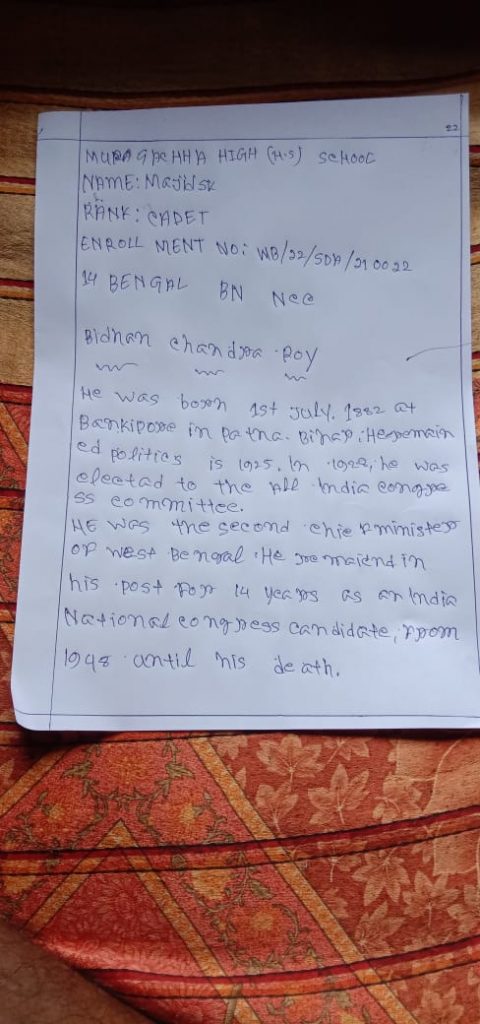 22
MURAGACHHA HIGH (H.S) SCHOOL
NAME: Majid sk
RANK: CADET
ENROLL MENT NO: WB/22/SDA/210022
14 BENGAL BN NCC
Bidhan chandra Roy
He was born 1st July. 1882 at
Bankipore in Patna. Bihar. He remain
ed politics is 1925. In 1928, he was
elected to the All India congre
ss committee.
HE was the second chief minister
of west Bengal. He remaiend in
his post for 14 years as an India
National congress candidate, from
1948 until his death.